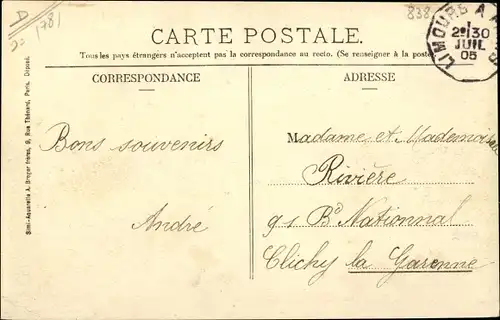 D
1781
838
CARTE POSTALE.
Tous les pays étrangers n'acceptent pas la correspondance au recto. (Se renseigner à la poste
LIMOURS A
2E30
JUIL
05
CORRESPONDANCE
ADRESSE
Simili-Aquarelle A. Breger frères, 9, Rue Thénard, Paris. Déposé.
Bons souvenirs
André
Madame et Mademoiselle
Rivière
91 Bd Nationnal
Clichy la Garenne